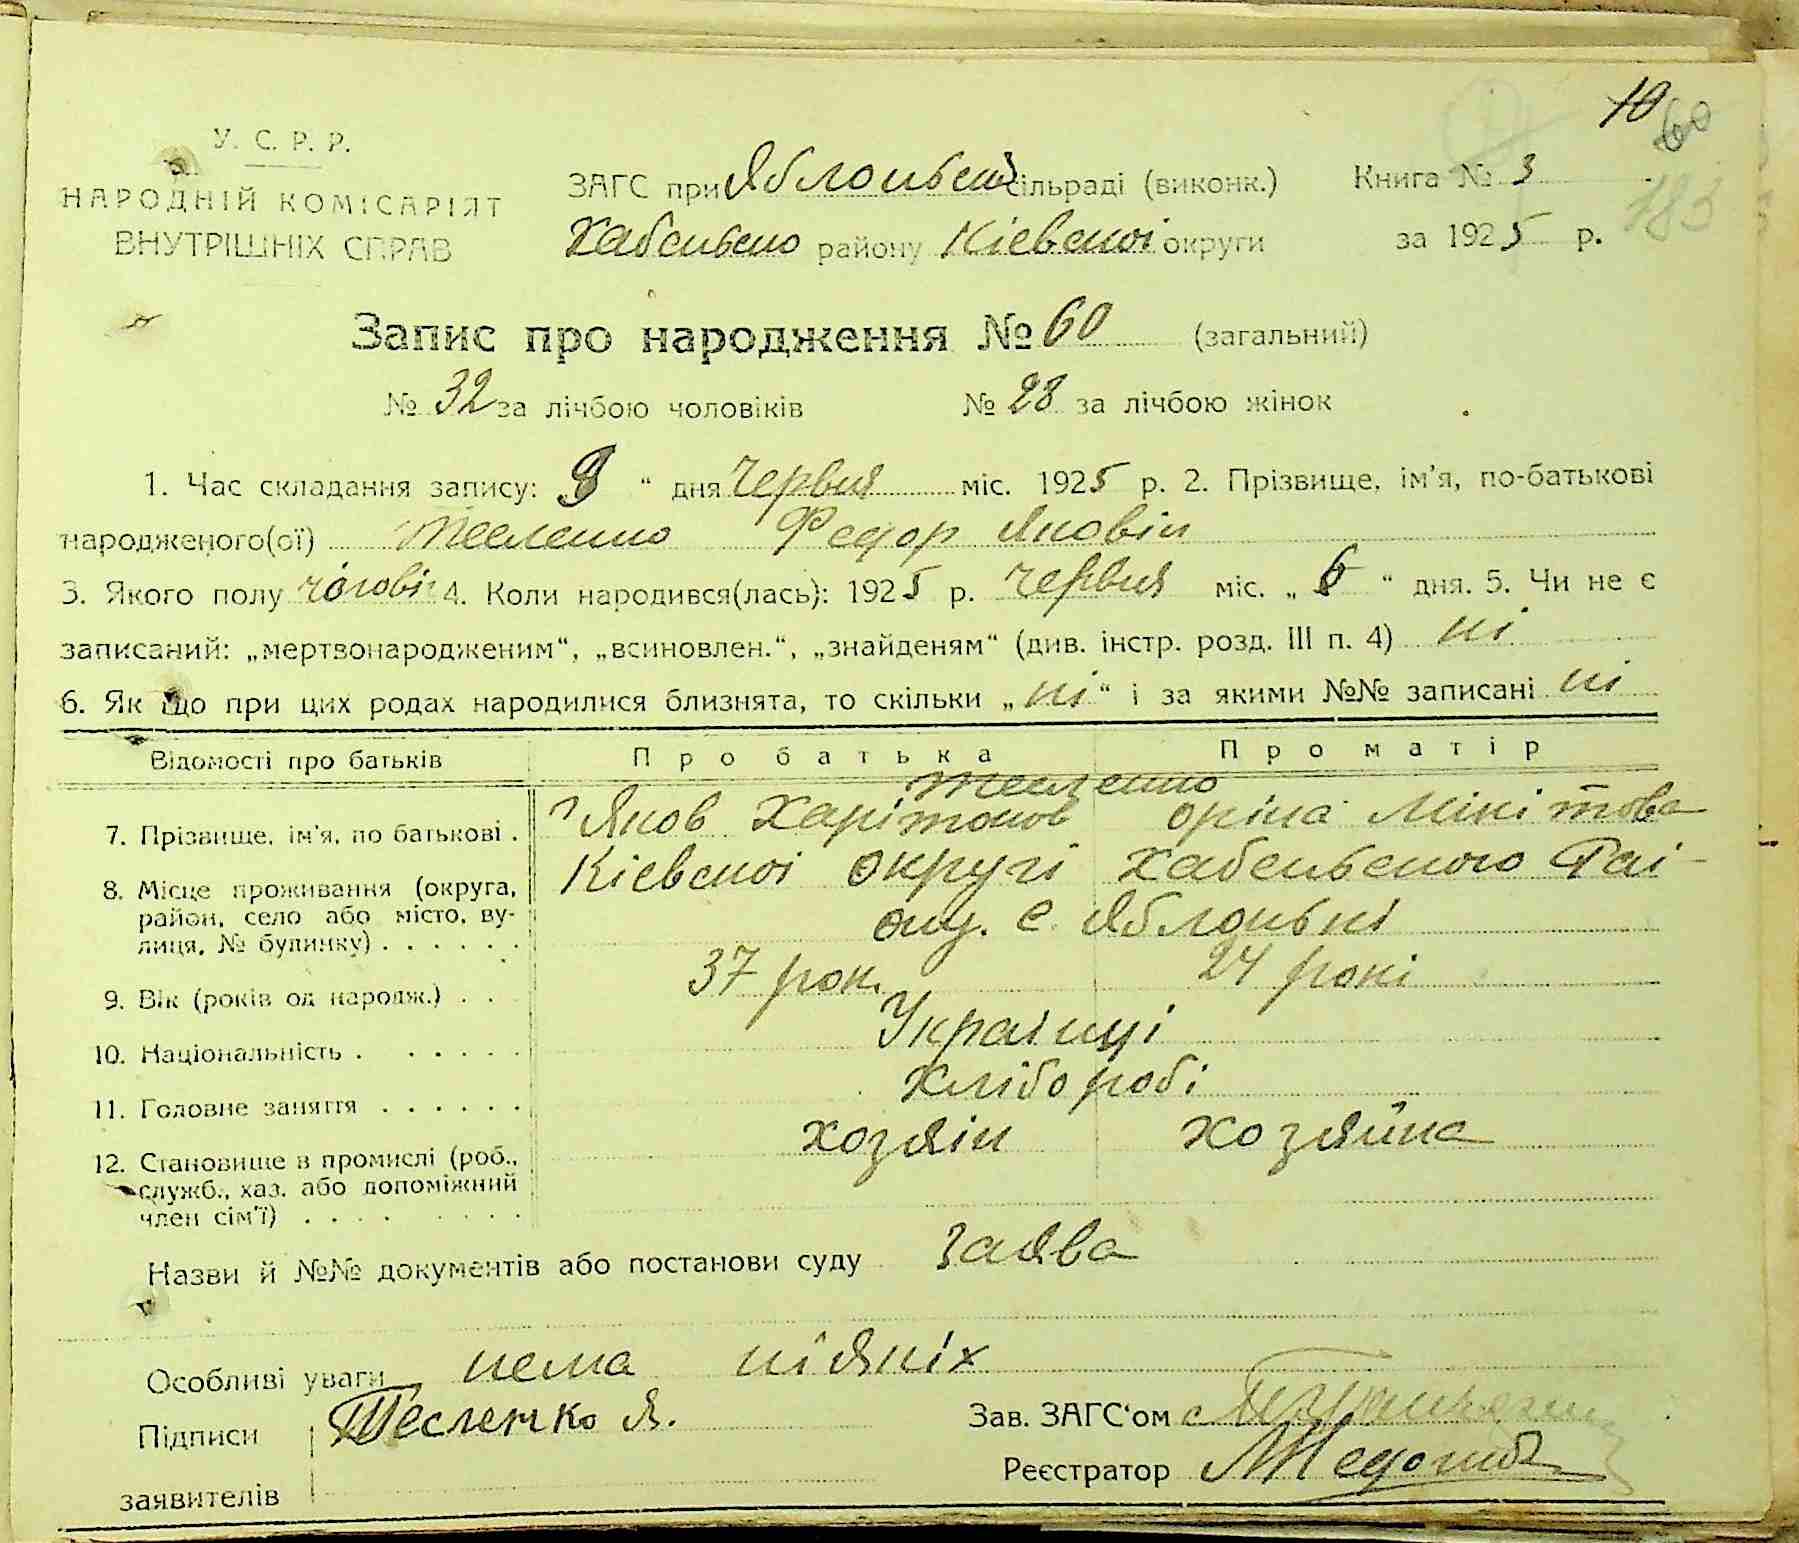 10 60
У. С. Р. Р.
НАРОДНІЙ КОМІСАРІЯТ
ВНУТРІШНІХ СПРАВ
ЗАГС при сільраді (виконк.)
району Кіевскоі округи
Книга № 3
за 1925 р.
183
Запис про народження № 60 (загальний)
№ 32 за лічбою чоловіків № 28 за лічбою жінок
1. Час складання запису: 8 “ дня червня міс. 1925 р. 2. Прізвище, ім'я, по-батькові
народженого(ої) Тесленко Федор Яковіч
3. Якого полу 4. Коли народився(лась): 1925 р. червня міс. „ 6 “ дня. 5. Чи не є
записаний: „мертвонародженим“, „всиновлен.“, „знайденям“ (див. інстр. розд. III п. 4) ні
6. Як що при цих родах народилися близнята, то скільки „ ні “ і за якими №№ записані ні
Відомості про батьків Про батька Про матір
Тесленко
7. Прізвище, ім'я, по батькові . Яков Харітонов оріна Мікітова
8. Місце проживання (округа, Кіевскоі округі Хабенського Раі-
район, село або місто, ву-
лиця, № будинку) . . . . . . ону. с. Яблонькі
9. Вік (років од народж.) . . 37 рок. 24 рокі
10. Національність . . . . . . Українці
11. Головне заняття . . . . . . хліборобі
12. Становище в промислі (роб., хозяін хозяйка
служб., хаз. або допоміжний
член сім'ї) . . . . . . . .
Назви й №№ документів або постанови суду заява
Особливі уваги нема ніякіх
Підписи Тесленко Я. Зав. ЗАГС‘ом
заявителів Реєстратор